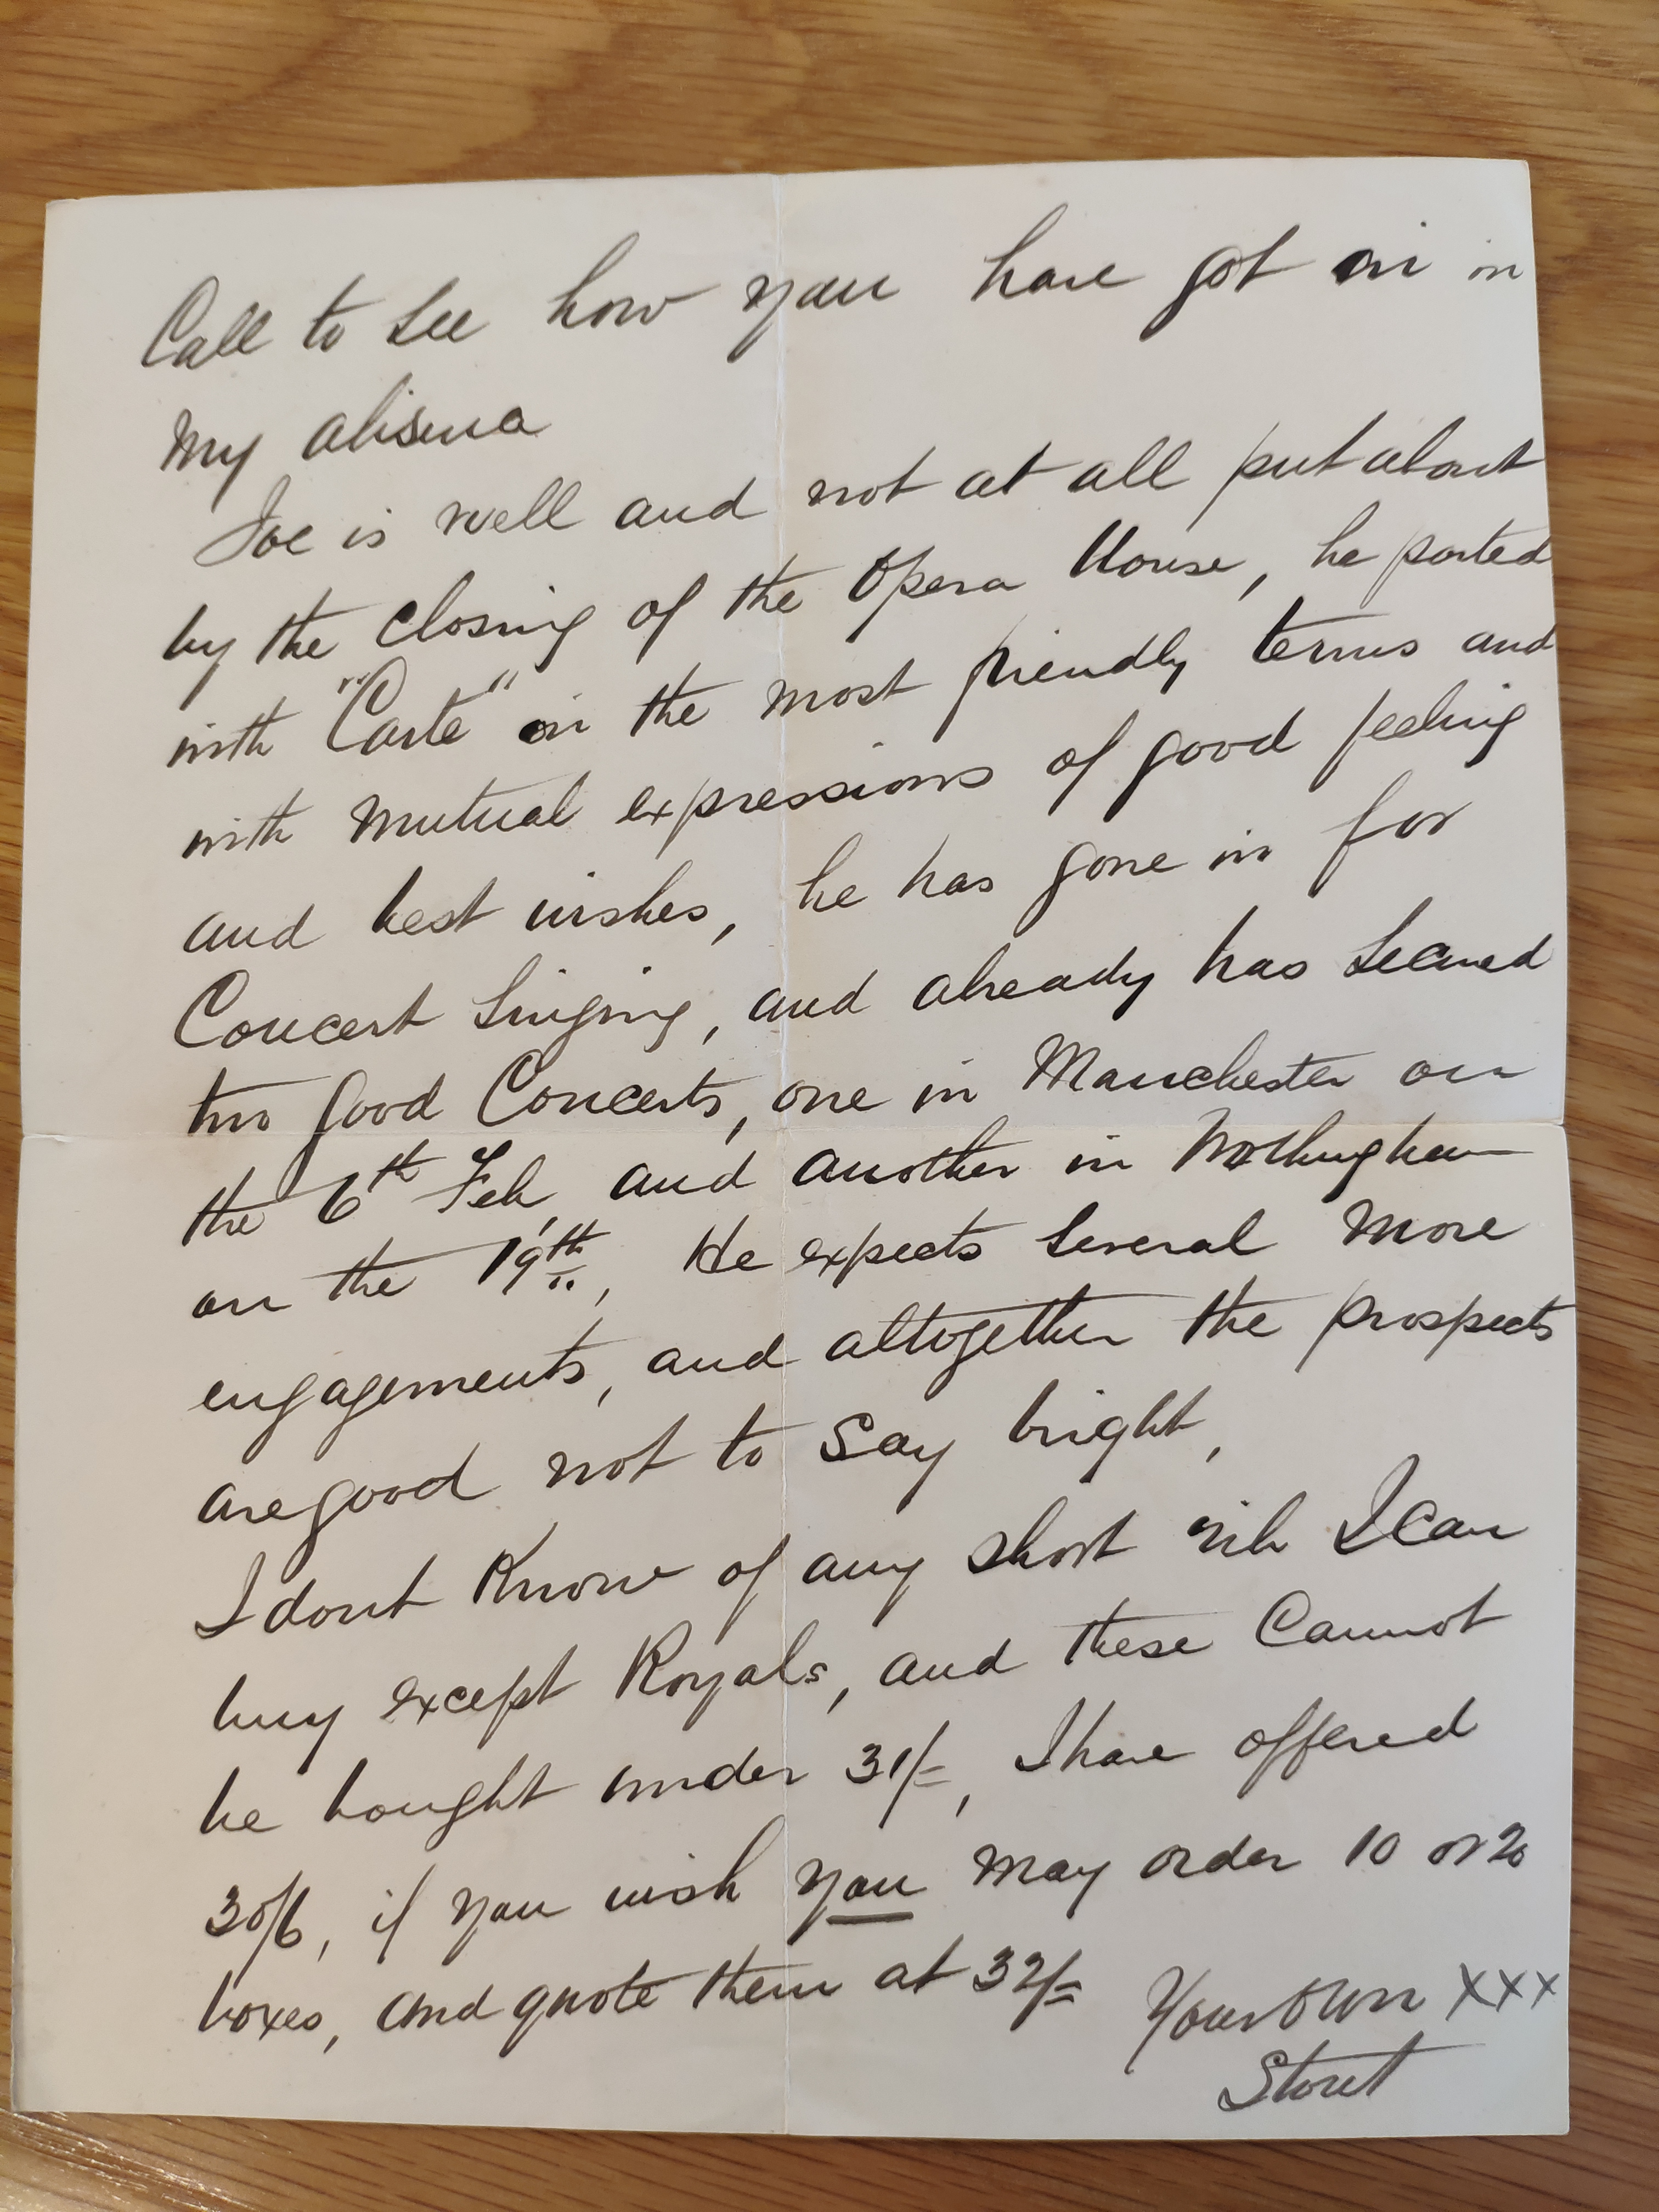 Call to see how you have got on in
my absence
Joe is well and not at all put about
by the closing of the Opera House, he parted
with "Carte" on the most friendly terms and
with mutual expressions of good feeling
and best wishes, he has gone in for
Concert Singing, and already has Secured
two good Concerts, one in Manchester on
the 6th Feb, and another in Nottingham
on the 19th, He expects Several more
engagements, and altogether the prospects
are good not to Say bright,
I dont Know of any short rib I can
buy except Royals, and these Cannot
be bought under 31/=, I have offered
30/6, if you wish you may order 10 or 20
boxes, and quote them at 32/=
Your Own xxx
Stout